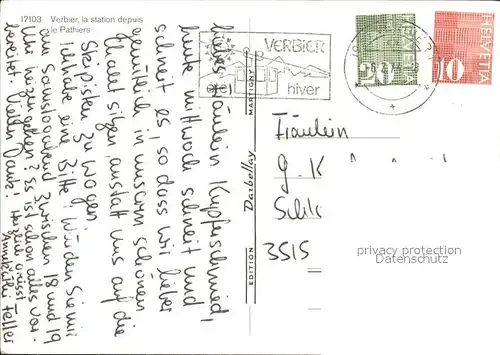 17103 Verbier, la station depuis
le Pathiers
Liebes Fräulein Kupferschmied,
heute Mittwoch schneit und
schneit es, so dass wir lieber
gemütlich in unserm schönen
Chalet sitzen, anstatt uns auf die
Skipisten zu wagen.
Ich habe eine Bitte! Würden Sie mir
am Samstagabend zwischen 18 und 19
Uhr heizen gehen? Es ist schon alles vor-
bereitet. Vielen Dank! Herzlich grüsst
Feller
VERBIER
été
hiver
MARTIGNY
HELVETIA
50
HELVETIA
10
EDITION Darbellay MARTIGNY
Fräulein
G. K
Schl
3515
privacy protection
Datenschutz